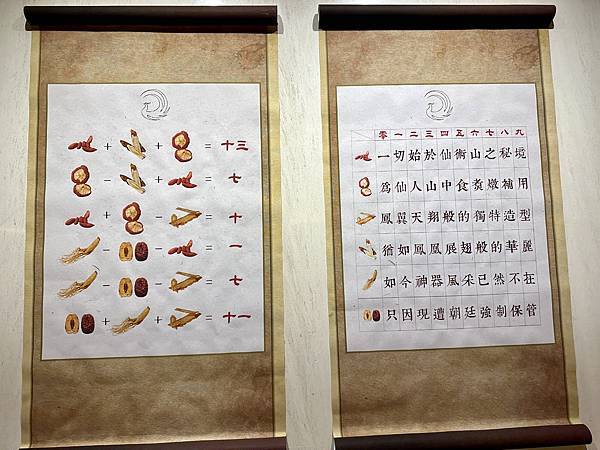 元
+ + = 十三
- + = 七
+ - = 十
- - = 一
- - = 七
+ + = 十一
元
零一二三四五六七八九
一切始於仙術山之秘境
為仙人山中食炙燉補用
鳳翼天翔般的獨特造型
猶如鳳凰展翅般的華麗
如今神器風采已然不在
只因現遭朝廷強制保管